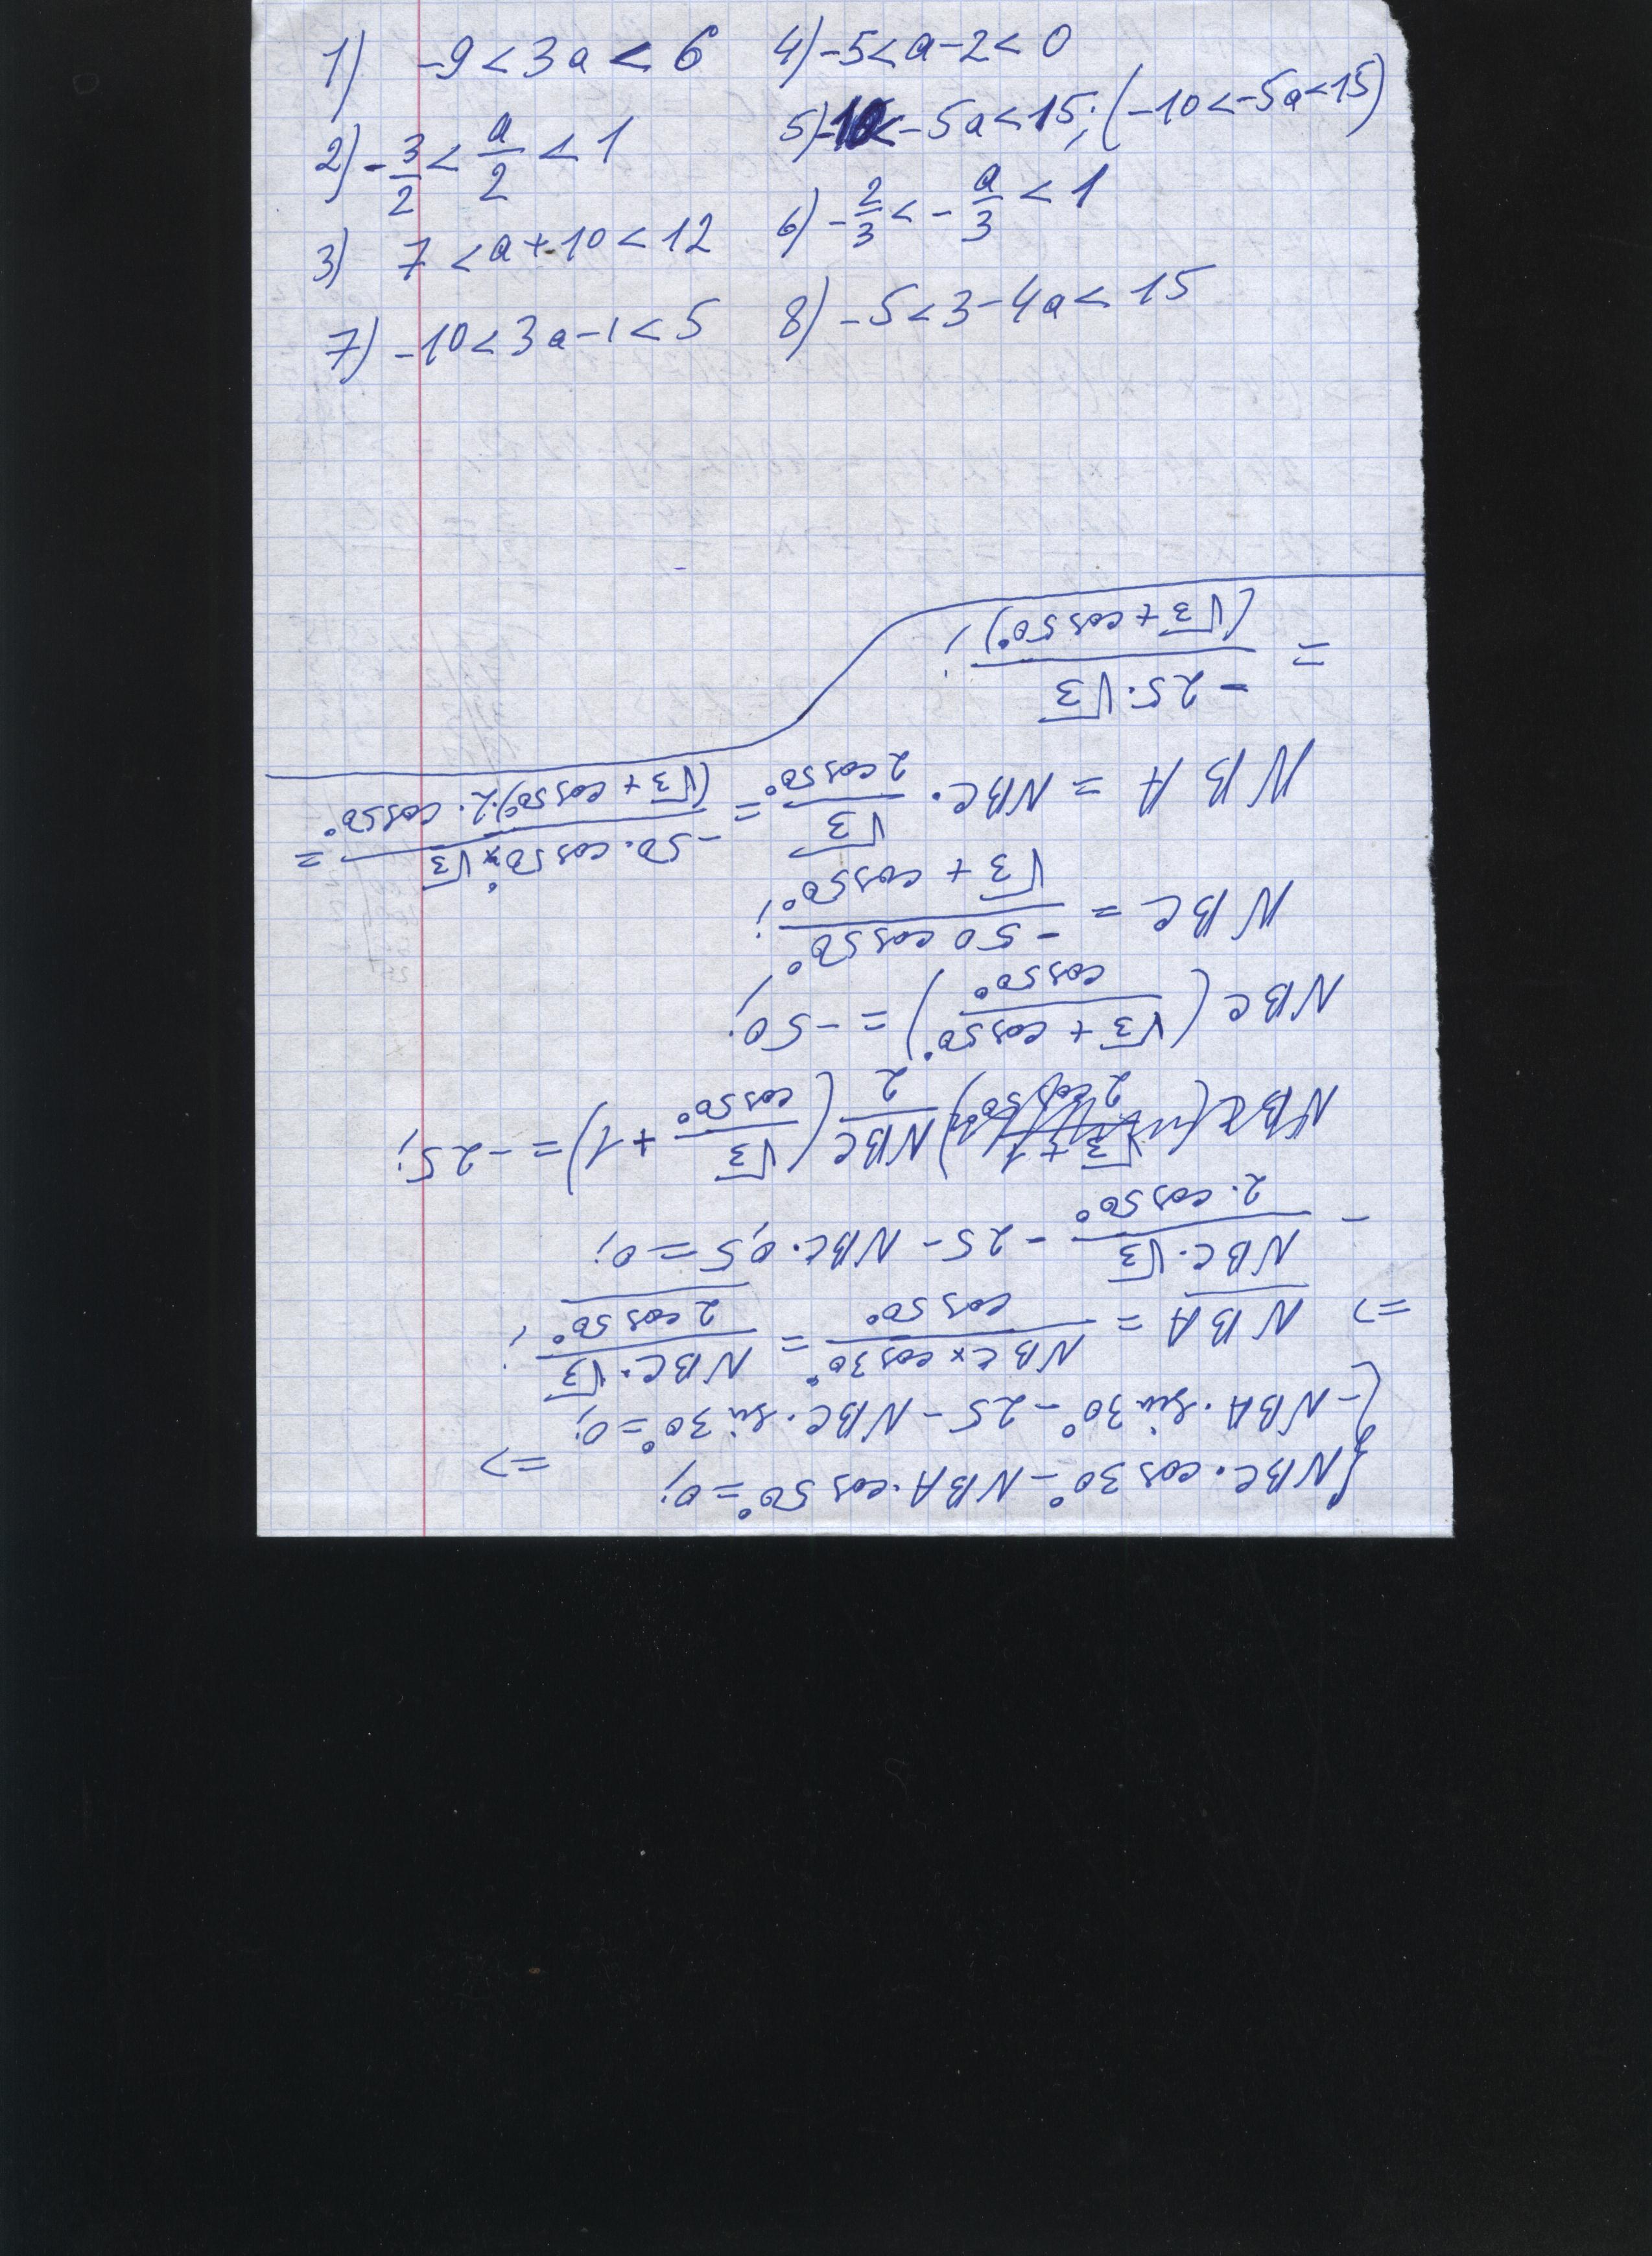 1) -9 < 3a < 6 4) -5 < a - 2 < 0
2) -3/2 < a/2 < 1 5) -10 < -5a < 15; (-10 < -5a < 15)
3) 7 < a + 10 < 12 6) -2/3 < -a/3 < 1
7) -10 < 3a - 1 < 5 8) -5 < 3 - 4a < 15
{NBC · cos 30° - NBA · cos 50° = 0;
{-NBA · sin 30° - 25 - NBC · sin 30° = 0; =>
=> NBA = NBC × cos 30° / cos 50° = NBC · √3 / 2 cos 50°;
- NBC · √3 / 2 · cos 50° - 25 - NBC · 0,5 = 0;
NBC/2 (√3 / cos 50° + 1) = -25;
NBC (√3 + cos 50° / cos 50°) = -50;
NBC = -50 cos 50° / √3 + cos 50°;
NBA = NBC · √3 / 2 cos 50° = -50 · cos 50° × √3 / (√3 + cos 50°) · 2 · cos 50° =
= -25 · √3 / (√3 + cos 50°);